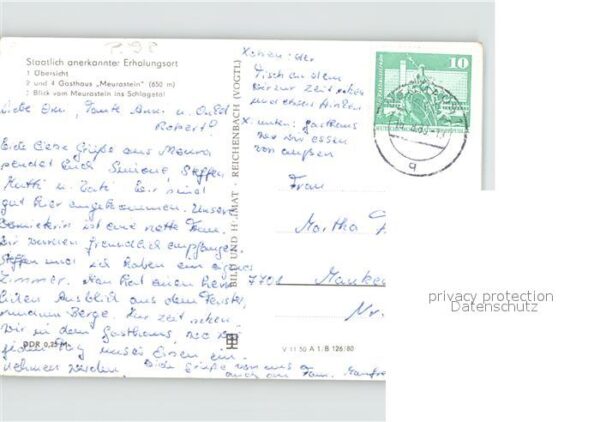 P.98
Staatlich anerkannter Erholungsort
1 Übersicht
2 und 4 Gasthaus „Meurastein" (650 m)
3 Blick vom Meurastein ins Schlagetal
Liebe Oma, Tante Anni u. Onkel
Robert!
liebe Grüße aus Meura
sendet Euch Simone, Steffen
Mutti u. Vati. Wir sind
gut hier angekommen. Unsere
ist eine nette Frau.
Wir wurden freundlich empfangen.
Steffen und ich haben ein eigenes
Zimmer. Man hat einen herr
lichen Ausblick aus dem Fenster
Berge. Zur Zeit
wir in dem Gasthaus, wo wir
jeden Tag unser Essen ein
nehmen werden. Viele Grüße von uns a
auch an Fam. Manfre
DDR 0,25 M
BILD UND HEIMAT · REICHENBACH (VOGTL)
V 11 50 A 1 B 126/80
X oben: der
Tisch an dem
wir zur Zeit
X unten: Gasthaus
wo wir essen
von außen
10
Frau
Martha
7701
Nr.
privacy protection
Datenschutz